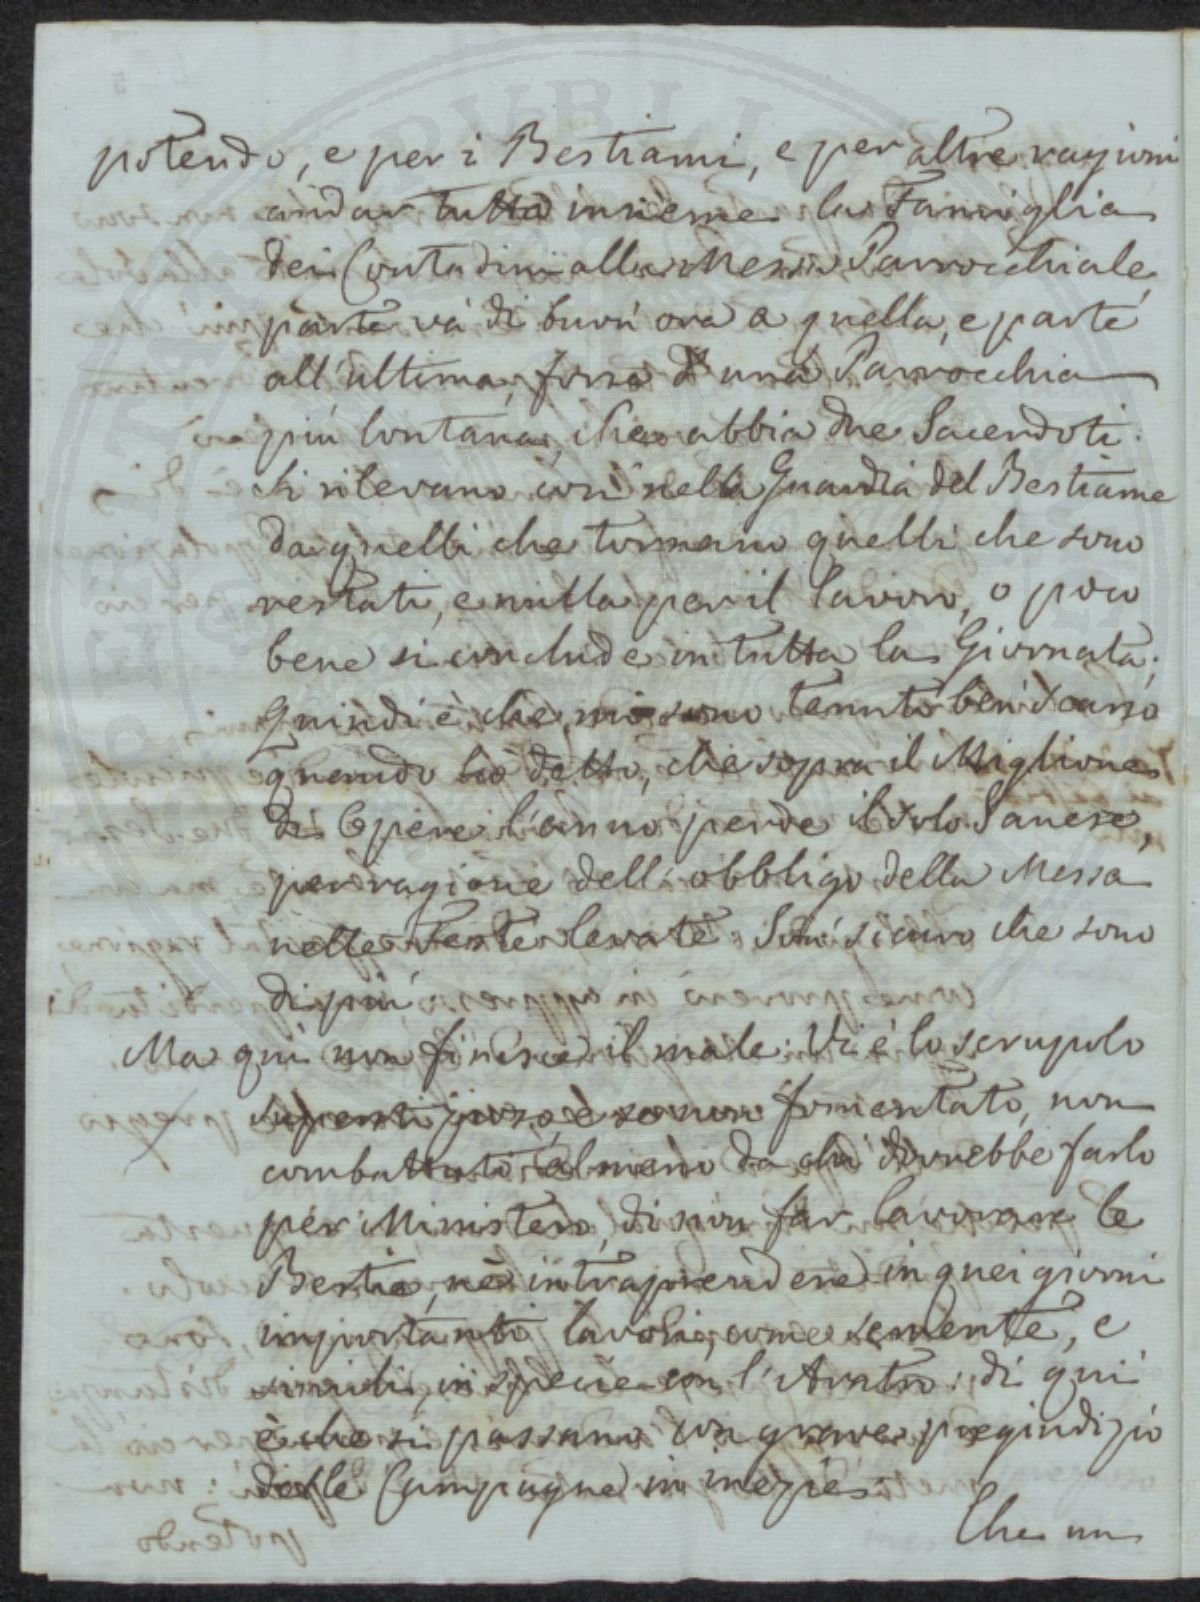 potendo, e per i Bestiami, e per altre ragioni
andar tutta insieme la Famiglia
dei Contadini alla Messa Parrocchiale,
parte và di buon' ora a quella, e parte
all' ultima, forse d' una Parrocchia
più lontana, che abbia due Sacerdoti:
Si rilevano così nella Guardia del Bestiame
da quelli che tornano quelli che sono
restati, e nulla per il lavoro, o poco
bene si conclude in tutta la Giornata;
Quindi è che mi sono tenuto ben scarso
quando ho detto, che sopra il Miglione
di Opere l'anno perde il solo Sanese,
per ragione dell' obbligo della Messa
nelle Feste levate. Son sicuro che sono
di più.
Ma quì non finisce il male: Vi è lo scrupolo
fomentato, non
combattuto almeno da chi dovrebbe farlo
per Ministero, di non far lavorare le
Bestie, nè intraprendere in quei giorni
importanti lavori, come semente, e
simili, in specie con l'Aratro: di qui
è che si passano con grave pregiudizio
delle Campagne in inezie.
Che un
PVBLIC